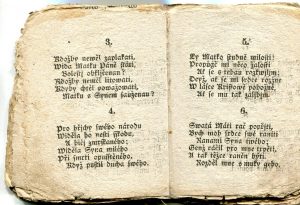 3.
Kdožby neměl zaplakati,
Wida Matku Páně státi,
Bolestj obkljčenau?
Kdožby neměl litowati,
Kdyby chtěl powažowati,
Matku s Synem saužen au?
4.
Pro hřjchy swého národu
Widěla ho nésti škodu,
A bičj zmrskaného;
Widěla Syna milého
Při smrti opuštěného,
Když pustil ducha swého.
5.
Ey Matko studně milosti!
Propůgč mi něco žalosti
Ať se s tebau rozkwjljm;
Deyž, ať se mi srdce rozžne
W lásce Kristowě pobožné,
Ať se mu tak zaljbjm.
6.
Swatá Máti rač popřjti,
Bych moh srdce swé raniti
Ranami Syna twého;
Genž ráčil pro mne trpěti,
A tak těžce raněn býti.
Rozděl mne s muky geho.